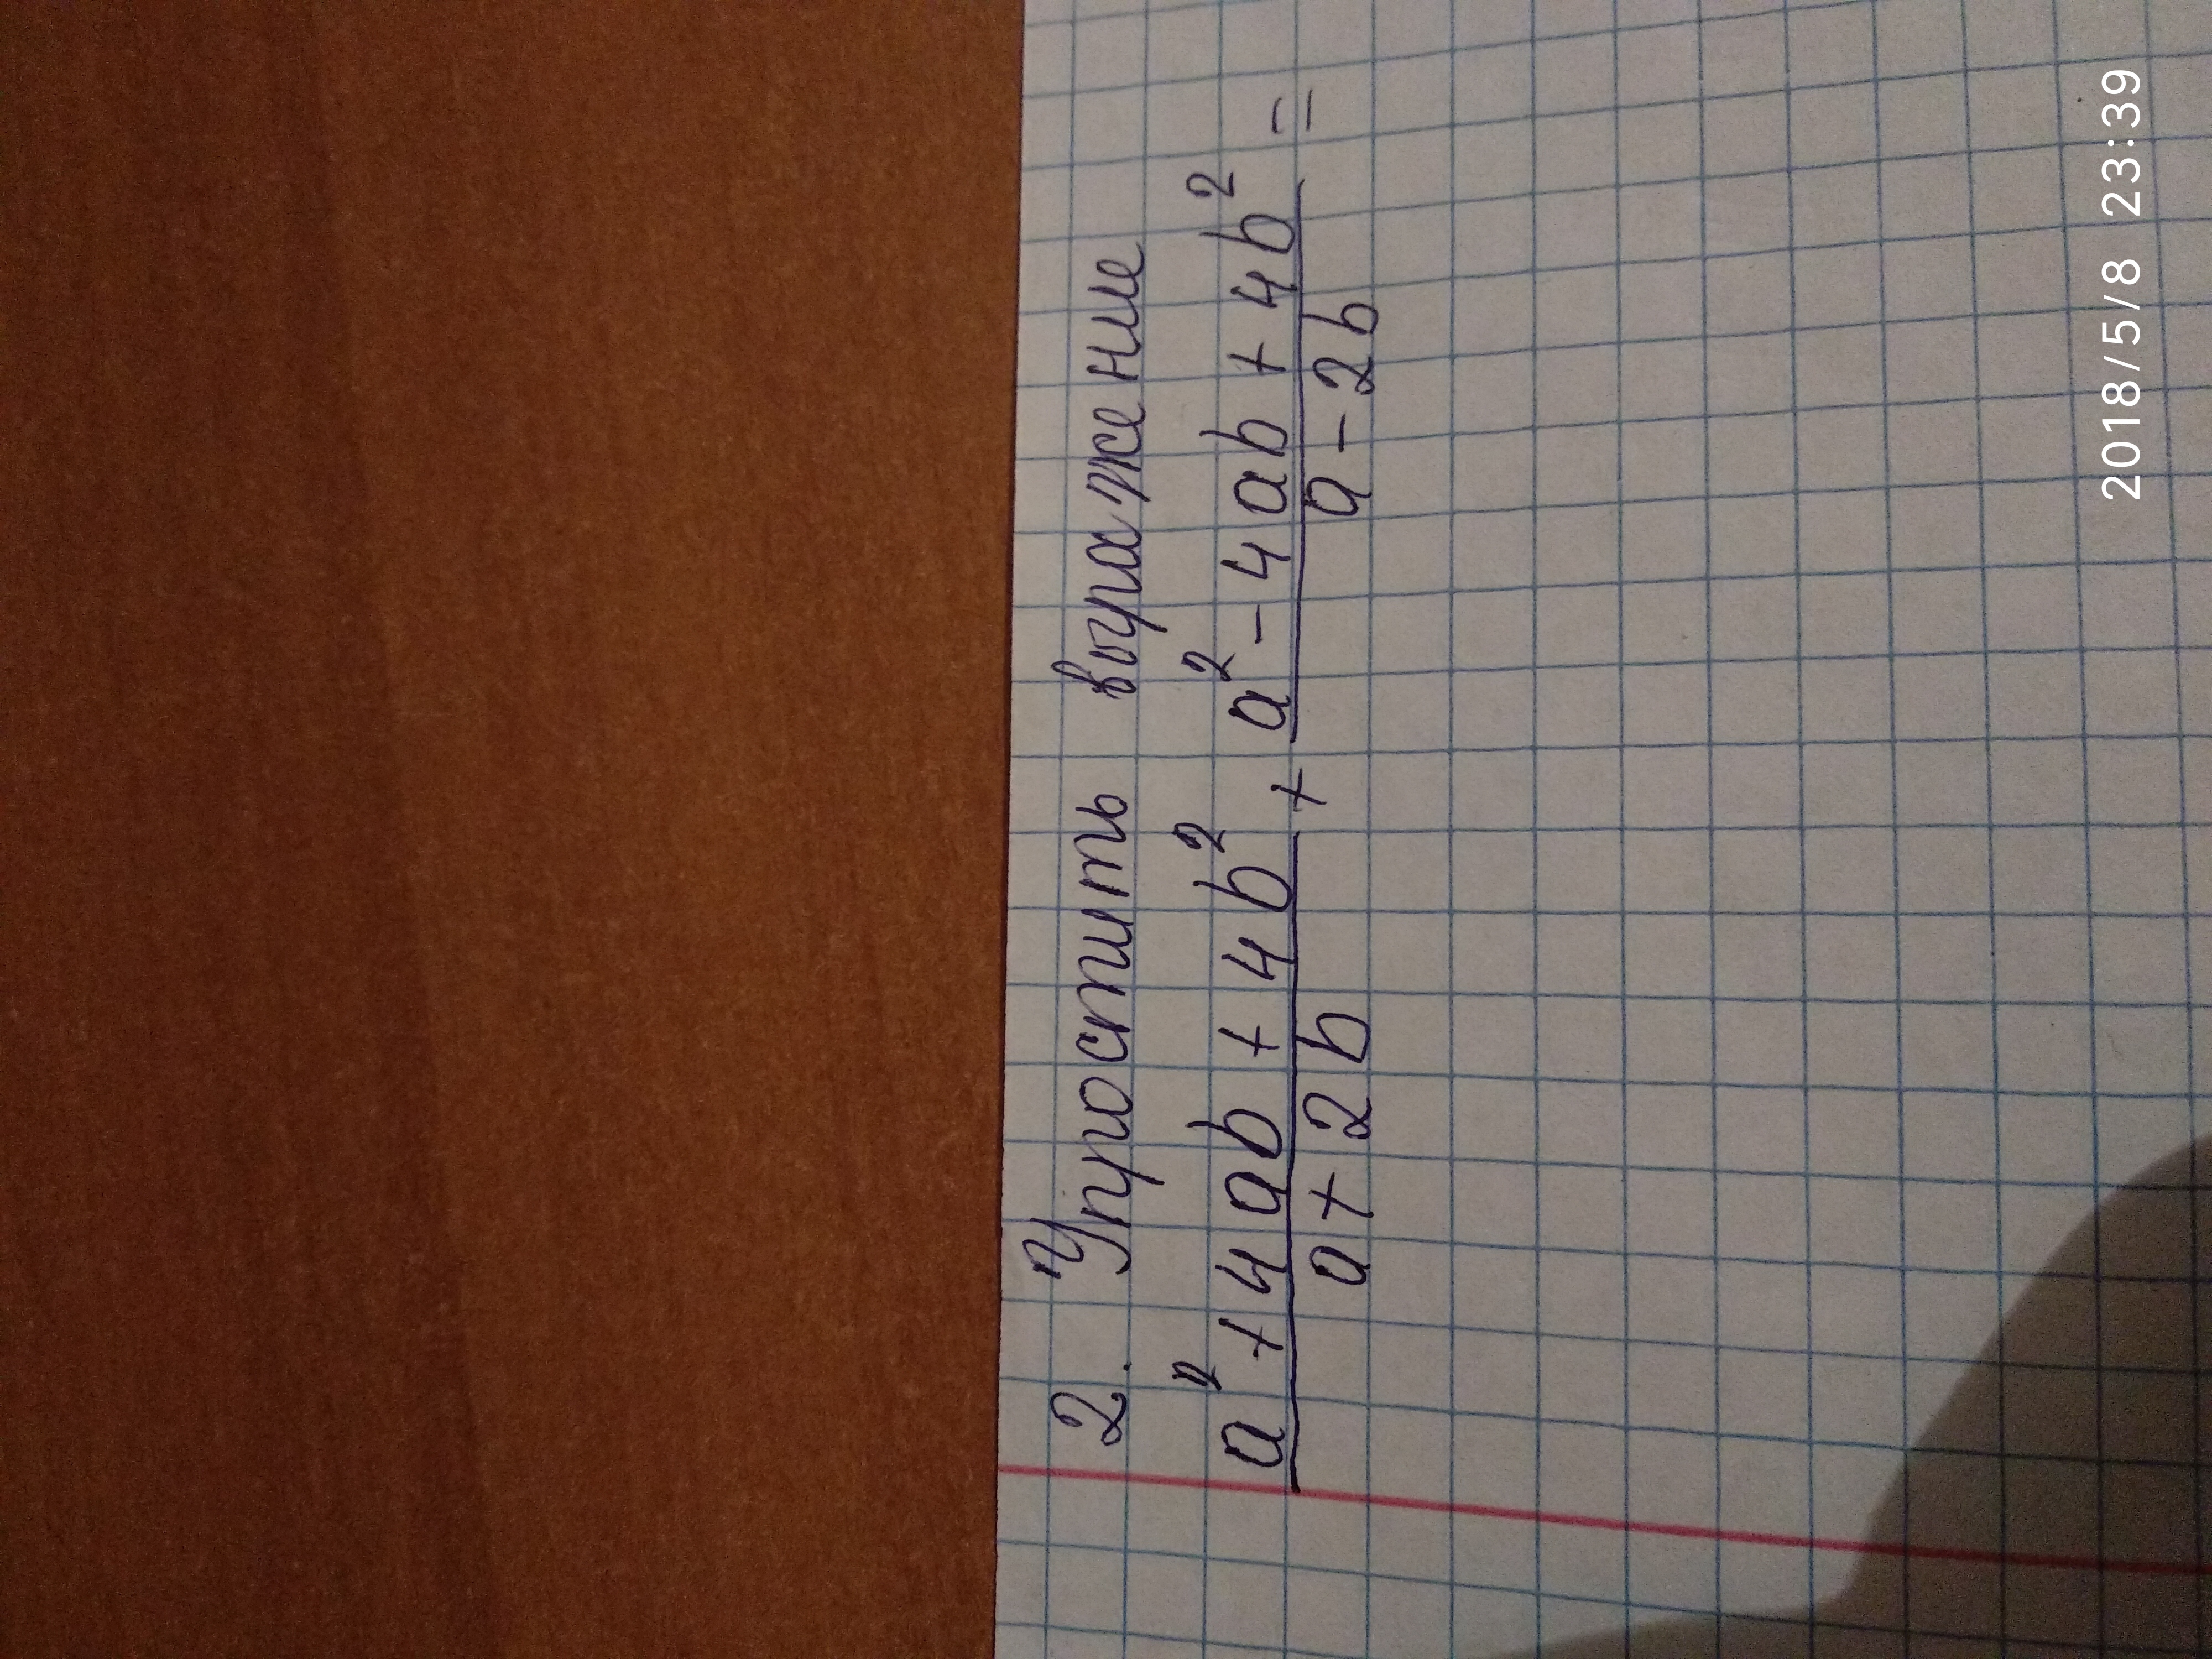 2. Упростить выражение
a² + 4ab + 4b² + a² - 4ab + 4b² =
a + 2b a - 2b
2018/5/8 23:39